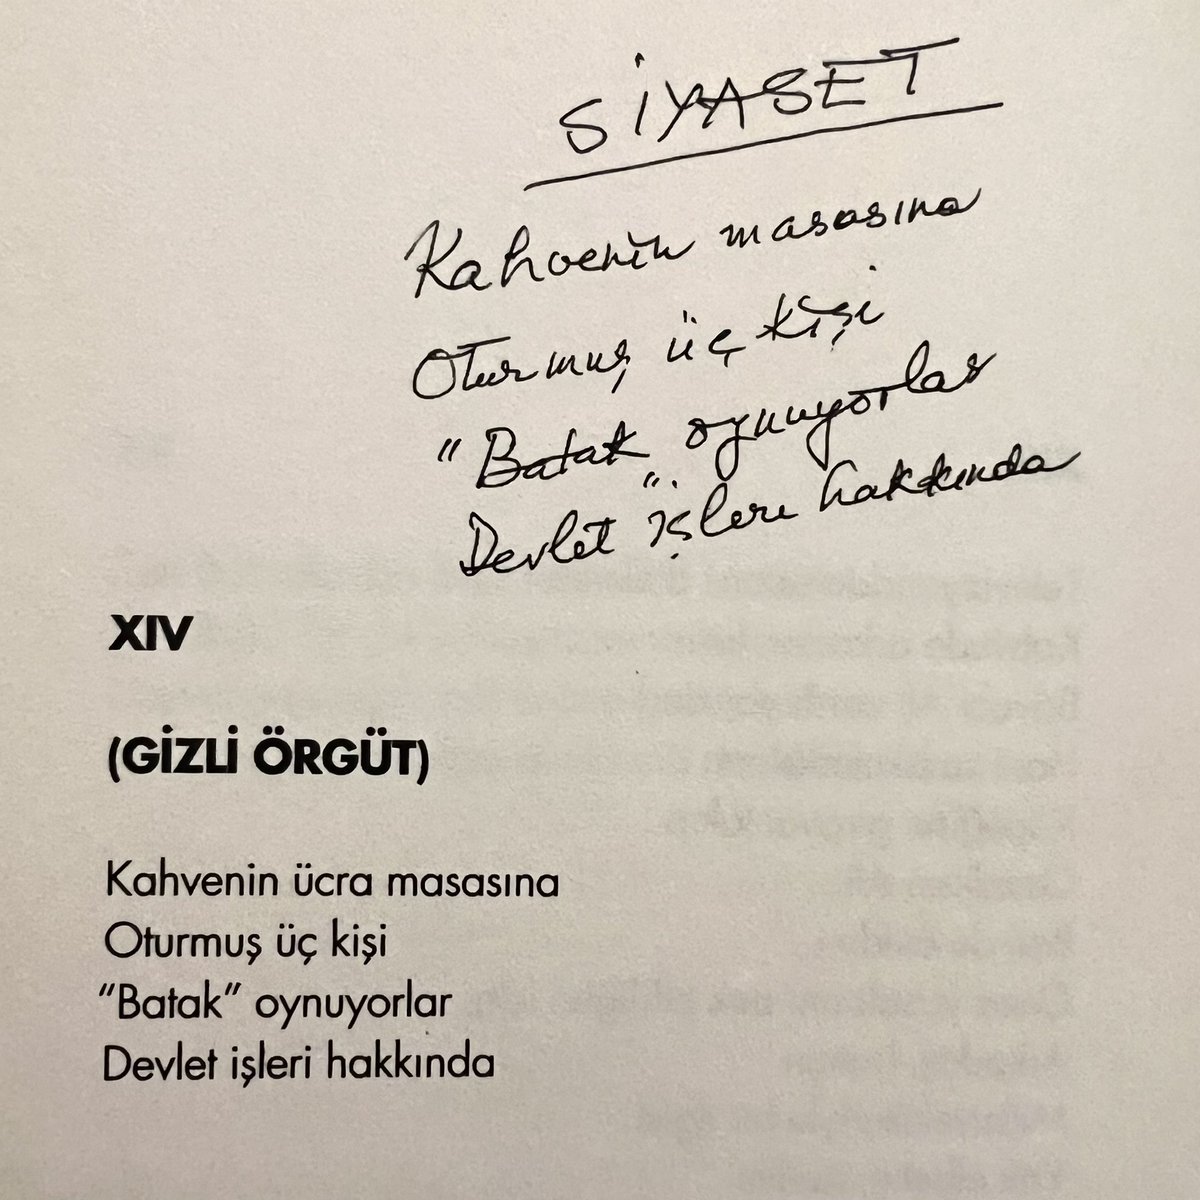 SİYASET
Kahvenin masasına
Oturmuş üç kişi
"Batak" oynuyorlar
Devlet işleri hakkında
XIV
(GİZLİ ÖRGÜT)
Kahvenin ücra masasına
Oturmuş üç kişi
"Batak" oynuyorlar
Devlet işleri hakkında